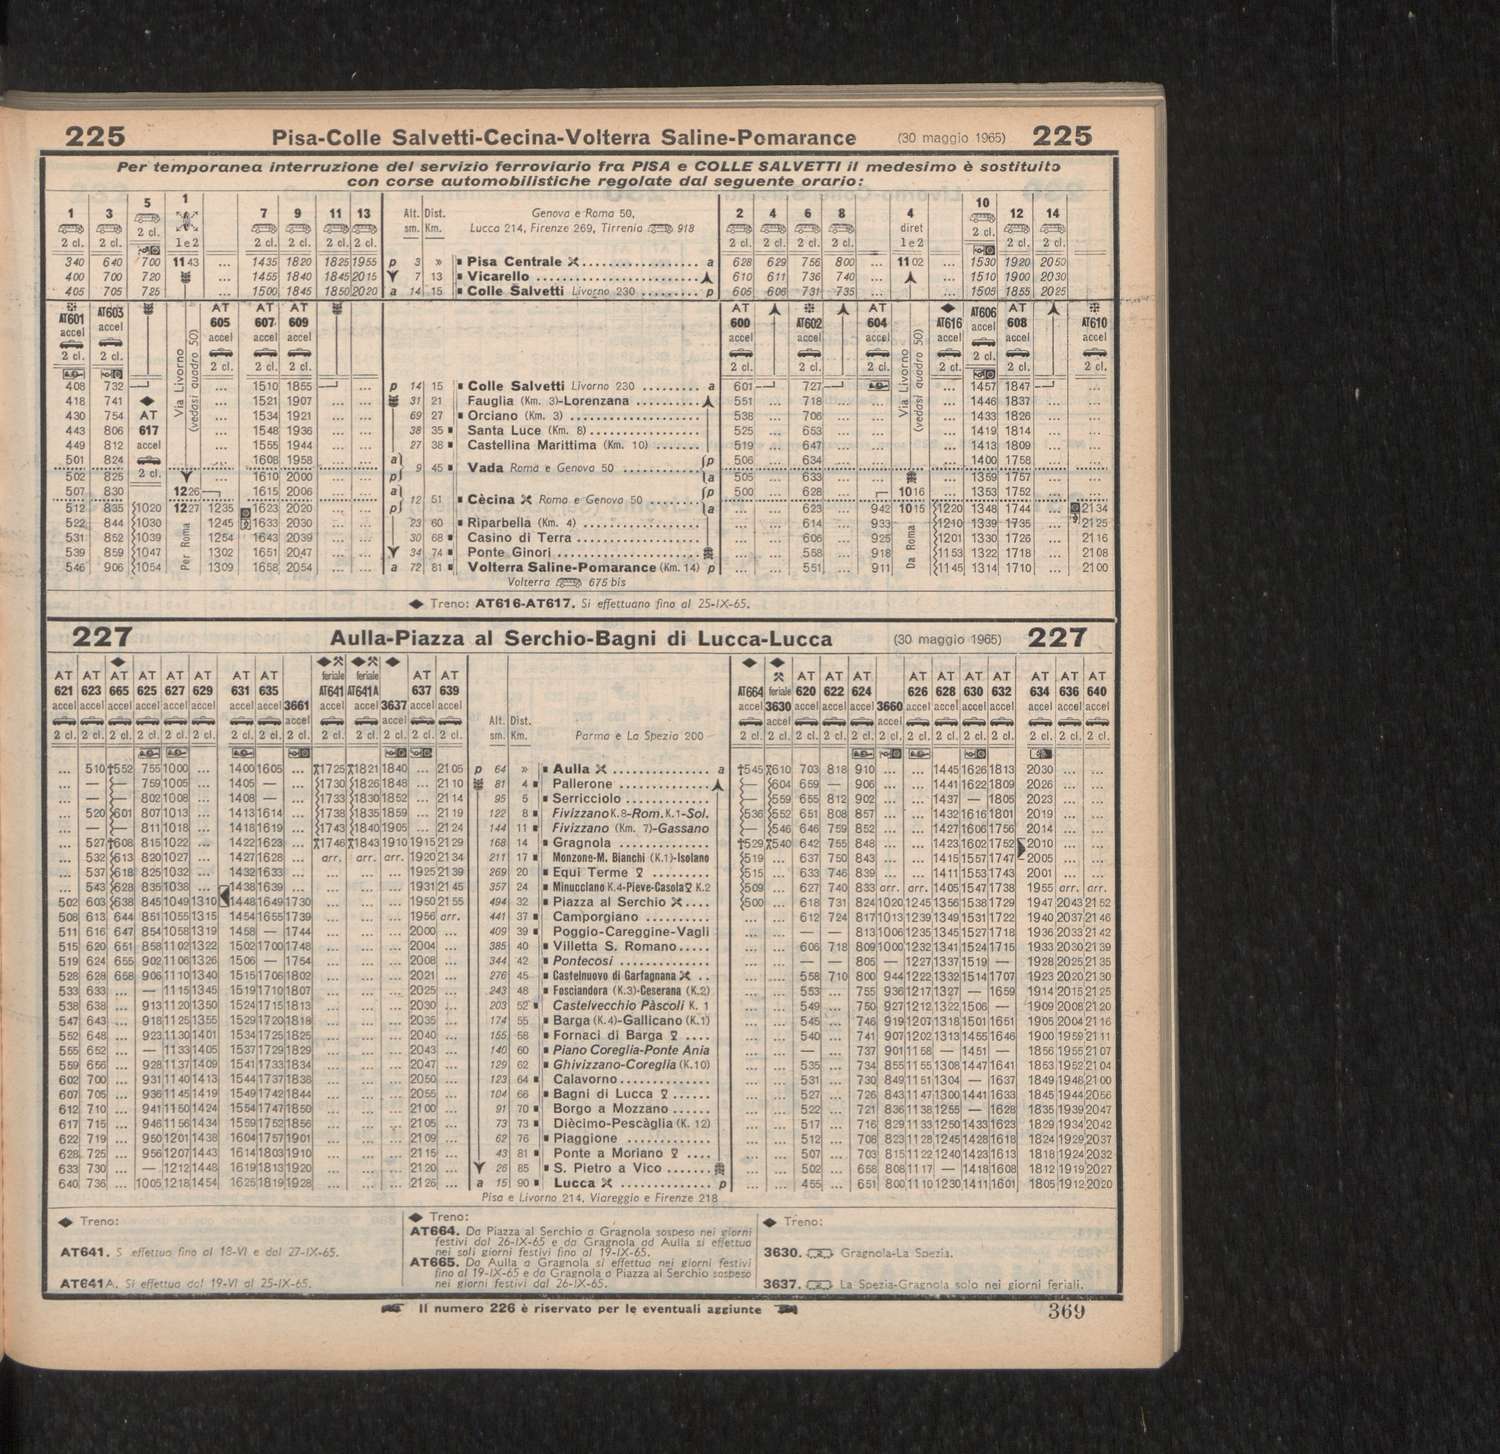 225 Pisa-Colle Salvetti-Cecina-Volterra Saline-Pomarance (30 maggio 1965) 225
Per temporanea interruzione del servizio ferroviario fra PISA e COLLE SALVETTI il medesimo è sostituito
con corse automobilistiche regolate dal seguente orario:
1 3 5 1 7 9 11 13 Alt. sm. Dist. Km. Genova e Roma 50, 2 4 6 8 4 10 12 14
Lucca 214, Firenze 269, Tirrenia 918 diret
2 cl. 2 cl. 2 cl. 1 e 2 2 cl. 2 cl. 2 cl. 2 cl. 2 cl. 2 cl. 2 cl. 2 cl. 1 e 2 2 cl. 2 cl. 2 cl.
340 640 700 11 43 ... 1435 1820 1825 1955 p 3 » Pisa Centrale a 628 629 756 800 ... 11 02 ... 1530 1920 2050
400 700 720 ... 1455 1840 1845 2015 7 13 Vicarello 610 611 736 740 ... ... 1510 1900 2030
405 705 725 ... 1500 1845 1850 2020 a 14 15 Colle Salvetti Livorno 230 p 605 606 731 735 ... ... 1505 1855 2025
AT601 AT603 AT 605 AT 607 AT 609 AT 600 AT602 AT 604 AT616 AT606 AT 608 AT610
accel accel accel accel accel accel accel accel accel accel accel accel
2 cl. 2 cl. 2 cl. 2 cl. 2 cl. 2 cl. 2 cl. 2 cl. 2 cl. 2 cl. 2 cl. 2 cl.
Via Livorno (vedasi quadro 50)
Via Livorno (vedasi quadro 50)
408 732 ... 1510 1855 ... p 14 15 Colle Salvetti Livorno 230 a 601 727 ... 1457 1847 ...
418 741 ... 1521 1907 ... ... 31 21 Fauglia (Km. 3)-Lorenzana 551 ... 718 ... ... ... 1446 1837 ... ...
430 754 AT ... 1534 1921 ... ... 69 27 Orciano (Km. 3) 538 ... 706 ... ... ... 1433 1826 ... ...
443 806 617 ... 1548 1936 ... ... 38 35 Santa Luce (Km. 8) 525 ... 653 ... ... ... 1419 1814 ... ...
449 812 accel ... 1555 1944 ... ... 27 38 Castellina Marittima (Km. 10) 519 ... 647 ... ... ... 1413 1809 ... ...
501 824 ... 1608 1958 ... ... a 9 45 Vada Roma e Genova 50 p 506 ... 634 ... ... ... 1400 1758 ... ...
502 825 2 cl. ... 1610 2000 ... ... p a 505 ... 633 ... ... 1359 1757 ... ...
507 830 12 26 1615 2006 ... ... a 12 51 Cècina Roma e Genova 50 p 500 ... 628 ... 10 16 ... 1353 1752 ... ...
512 835 1020 12 27 1235 1623 2020 ... ... p a ... ... 623 ... 942 10 15 1220 1348 1744 ... 21 34
522 844 1030 1245 1633 2030 ... ... 23 60 Riparbella (Km. 4) ... ... 614 ... 933 1210 1339 1735 ... 21 25
531 852 1039 1254 1643 2039 ... ... 30 68 Casino di Terra ... ... 606 ... 925 1201 1330 1726 ... 21 16
539 859 1047 1302 1651 2047 ... ... 34 74 Ponte Ginori ... ... 558 ... 918 1153 1322 1718 ... 21 08
546 906 1054 1309 1658 2054 ... ... a 72 81 Volterra Saline-Pomarance (Km. 14) p ... ... 551 ... 911 1145 1314 1710 ... 21 00
Per Roma
Da Roma
Volterra 675 bis
◆ Treno: AT616-AT617. Si effettuano fino al 25-IX-65.
227 Aulla-Piazza al Serchio-Bagni di Lucca-Lucca (30 maggio 1965) 227
AT 621 AT 623 AT 665 AT 625 AT 627 AT 629 AT 631 AT 635 3661 feriale AT641 feriale AT641A 3637 AT 637 AT 639 AT664 feriale 3630 AT 620 AT 622 AT 624 3660 AT 626 AT 628 AT 630 AT 632 AT 634 AT 636 AT 640
accel accel accel accel accel accel accel accel accel accel accel accel accel accel Alt. sm. Dist. Km. accel accel accel accel accel accel accel accel accel accel accel accel accel
2 cl. 2 cl. 2 cl. 2 cl. 2 cl. 2 cl. 2 cl. 2 cl. 2 cl. 2 cl. 2 cl. 2 cl. 2 cl. 2 cl. Parma e La Spezia 200 2 cl. 2 cl. 2 cl. 2 cl. 2 cl. 2 cl. 2 cl. 2 cl. 2 cl. 2 cl. 2 cl. 2 cl. 2 cl.
... 510 †552 755 1000 ... 1400 1605 ... 1725 1821 1840 ... 21 05 p 64 » Aulla a †545 610 703 818 910 ... ... 1445 1626 1813 2030 ... ...
... — 759 1005 ... 1405 — ... 1730 1826 1848 ... 21 10 81 4 Pallerone — 604 659 — 906 ... ... 1441 1622 1809 2026 ... ...
... — 802 1008 ... 1408 — ... 1733 1830 1852 ... 21 14 95 5 Serricciolo — 559 655 812 902 ... ... 1437 — 1805 2023 ... ...
... 520 601 807 1013 ... 1413 1614 ... 1738 1835 1859 ... 21 19 122 8 Fivizzano K.8-Rom. K.1-Sol. 536 552 651 808 857 ... ... 1432 1616 1801 2019 ... ...
... — — 811 1018 ... 1418 1619 ... 1743 1840 1905 ... 21 24 144 11 Fivizzano (Km. 7)-Gassano — 546 646 759 852 ... ... 1427 1606 1756 2014 ... ...
... 527 †608 815 1022 ... 1422 1623 ... 1746 1843 1910 1915 21 29 168 14 Gragnola †529 540 642 755 848 ... ... 1423 1602 1752 2010 ... ...
... 532 613 820 1027 ... 1427 1628 ... arr. arr. arr. 1920 21 34 211 17 Monzone-M. Bianchi (K.1)-Isolano 519 ... 637 750 843 ... ... 1415 1557 1747 2005 ... ...
... 537 618 825 1032 ... 1432 1633 ... ... ... ... 1925 21 39 269 20 Equi Terme 515 ... 633 746 839 ... ... 1411 1553 1743 2001 ... ...
... 543 628 835 1038 ... 1438 1639 ... ... ... ... 1931 21 45 357 24 Minucciano K.4-Pieve-Casola K.2 509 ... 627 740 833 arr. arr. 1405 1547 1738 1955 arr. arr.
502 603 638 845 1049 1310 1448 1649 1730 ... ... ... 1950 21 55 494 32 Piazza al Serchio 500 ... 618 731 824 1020 1245 1356 1538 1729 1947 2043 21 52
508 613 644 851 1055 1315 1454 1655 1739 ... ... ... 1956 arr. 441 37 Camporgiano ... ... 612 724 817 1013 1239 1349 1531 1722 1940 2037 21 46
511 616 647 854 1058 1319 1458 — 1744 ... ... ... 2000 ... 409 39 Poggio-Careggine-Vagli ... ... — — 813 1006 1235 1345 1527 1718 1936 2033 21 42
515 620 651 858 1102 1322 1502 1700 1748 ... ... ... 2004 ... 385 40 Villetta S. Romano ... ... 606 718 809 1000 1232 1341 1524 1715 1933 2030 21 39
519 624 655 902 1106 1326 1506 — 1754 ... ... ... 2008 ... 344 42 Pontecosi ... ... — — 805 — 1227 1337 1519 — 1928 2025 21 35
528 628 668 906 1110 1340 1515 1706 1802 ... ... ... 2021 ... 276 45 Castelnuovo di Garfagnana ... ... 558 710 800 944 1222 1332 1514 1707 1923 2020 21 30
533 633 ... — 1115 1345 1519 1710 1807 ... ... ... 2025 ... 243 48 Fosciandora (K.3)-Ceserana (K.2) ... ... 553 ... 755 936 1217 1327 — 1659 1914 2015 21 25
538 638 ... 913 1120 1350 1524 1715 1813 ... ... ... 2030 ... 203 52 Castelvecchio Pàscoli K. 1 ... ... 549 ... 750 927 1212 1322 1506 — 1909 2008 21 20
547 643 ... 918 1125 1355 1529 1720 1818 ... ... ... 2035 ... 174 55 Barga (K.4)-Gallicano (K.1) ... ... 545 ... 746 919 1207 1318 1501 1651 1905 2004 21 16
552 648 ... 923 1130 1401 1534 1725 1825 ... ... ... 2040 ... 155 58 Fornaci di Barga ... ... 540 ... 741 907 1202 1313 1455 1646 1900 1959 21 11
555 652 ... — 1133 1405 1537 1729 1829 ... ... ... 2043 ... 140 60 Piano Coreglia-Ponte Ania ... ... — ... 737 901 1158 — 1451 — 1856 1955 21 07
559 656 ... 928 1137 1409 1541 1733 1834 ... ... ... 2047 ... 129 62 Ghivizzano-Coreglia (K.10) ... ... 535 ... 734 855 1155 1308 1447 1641 1853 1952 21 04
602 700 ... 931 1140 1413 1544 1737 1838 ... ... ... 2050 ... 123 64 Calavorno ... ... 531 ... 730 849 1151 1304 — 1637 1849 1948 21 00
607 705 ... 936 1145 1419 1549 1742 1844 ... ... ... 2055 ... 104 66 Bagni di Lucca ... ... 527 ... 726 843 1147 1300 1441 1633 1845 1944 2056
612 710 ... 941 1150 1424 1554 1747 1850 ... ... ... 21 00 ... 91 70 Borgo a Mozzano ... ... 522 ... 721 836 1138 1255 — 1628 1835 1939 2047
617 715 ... 946 1156 1434 1559 1752 1856 ... ... ... 21 05 ... 73 73 Diècimo-Pescàglia (K. 12) ... ... 517 ... 716 829 1133 1250 1433 1623 1829 1934 2042
622 719 ... 950 1201 1438 1604 1757 1901 ... ... ... 21 09 ... 62 76 Piaggione ... ... 512 ... 708 823 1128 1245 1428 1618 1824 1929 2037
628 725 ... 956 1207 1443 1614 1803 1910 ... ... ... 21 15 ... 43 81 Ponte a Moriano ... ... 507 ... 703 815 1122 1240 1423 1613 1818 1924 2032
633 730 ... — 1212 1448 1619 1813 1920 ... ... ... 21 20 ... 26 85 S. Pietro a Vico ... ... 502 ... 658 808 1117 — 1418 1608 1812 1919 2027
640 736 ... 1005 1218 1454 1625 1819 1928 ... ... ... 21 26 ... a 15 90 Lucca p ... ... 455 ... 651 800 1110 1230 1411 1601 1805 1912 2020
Pisa e Livorno 214, Viareggio e Firenze 218
◆ Treno:
AT641. Si effettua fino al 18-VI e dal 27-IX-65.
AT641A. Si effettua dal 19-VI al 25-IX-65.
◆ Treno:
AT664. Da Piazza al Serchio a Gragnola sospeso nei giorni
festivi dal 26-IX-65 e da Gragnola ad Aulla si effettua
nei soli giorni festivi fino al 19-IX-65.
AT665. Da Aulla a Gragnola si effettua nei giorni festivi
fino al 19-IX-65 e da Gragnola a Piazza al Serchio sospeso
nei giorni festivi dal 26-IX-65.
◆ Treno:
3630. Gragnola-La Spezia.
3637. La Spezia-Gragnola solo nei giorni feriali.
Il numero 226 è riservato per le eventuali aggiunte
369